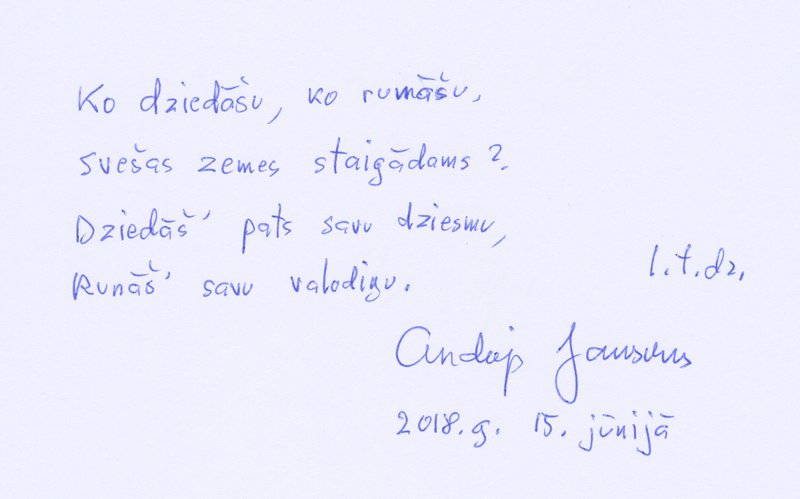 Ko dziedāšu, ko runāšu,
svešas zemes staigādams?
Dziedāš' pats savu dziesmu,
Runāš' savu valodiņu.
l.t.dz.
Andrejs Jansons
2018.g. 15. jūnijā